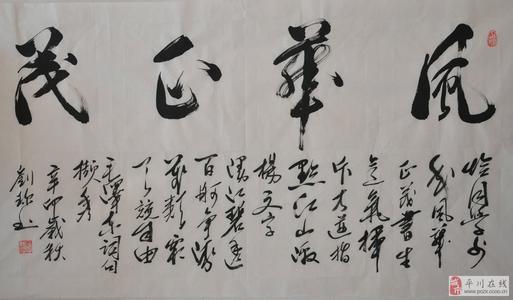 風華正茂
恰同學少
年風華
正茂書生
意氣揮
斥方遒指
點江山激
揚文字
漫江碧透
百舸爭流
萬類霜
天競自由
毛澤東詞句
辛卯歲秋
平川在线